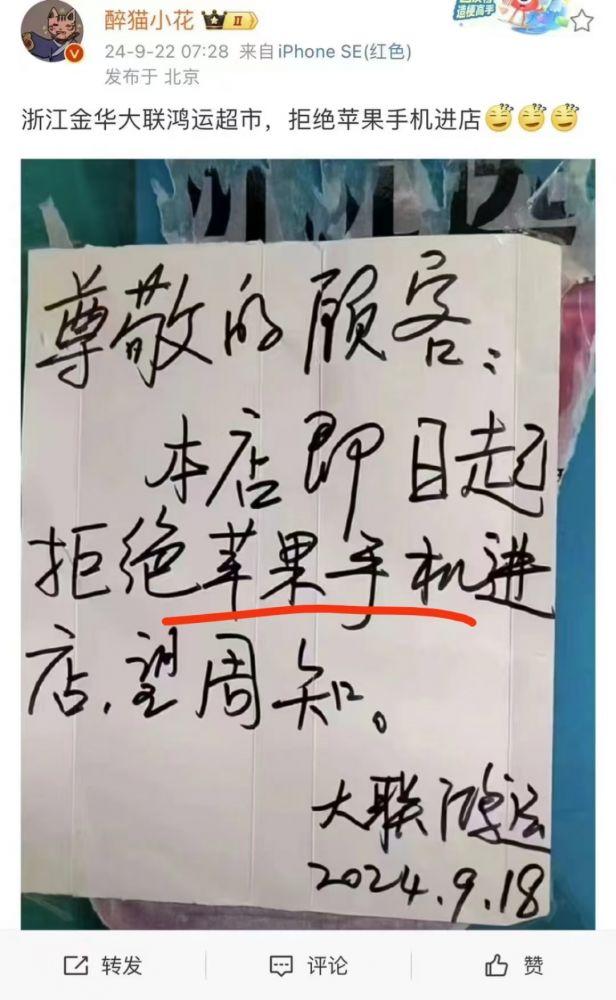 醉猫小花 II
24-9-22 07:28 来自 iPhone SE(红色)
发布于 北京
浙江金华大联鸿运超市，拒绝苹果手机进店
尊敬的顾客：
本店即日起
拒绝苹果手机进
店，望周知。
大联鸿运
2024.9.18
转发
评论
赞